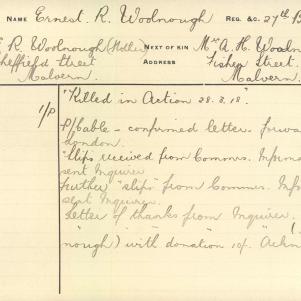 NAME Ernest R. Woolnough REG. &c. 27th B
R Woolnough (Mother) NEXT OF KIN Mrs A. H. Wooln
Sheffield Street ADDRESS Fisher Street.
Malvern. Malvern.
1/P "Killed in Action 28.3.18".
P/Cable - confirmed letter. forwa
London.
"Slips received from Commrs. Informa
sent Inquirer
Further "slips" from Commrs. Inf
sent Inquirer.
Letter of thanks from Inquirer.
nough) with donation 10/. "Ackn